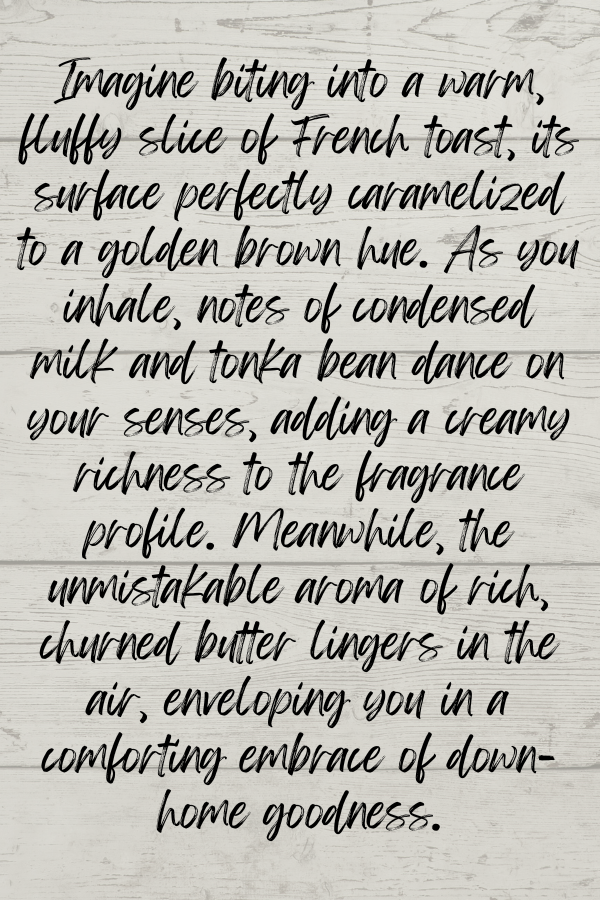 Imagine biting into a warm,
fluffy slice of French toast, its
surface perfectly caramelized
to a golden brown hue. As you
inhale, notes of condensed
milk and tonka bean dance on
your senses, adding a creamy
richness to the fragrance
profile. Meanwhile, the
unmistakable aroma of rich,
churned butter lingers in the
air, enveloping you in a
comforting embrace of down-
home goodness.